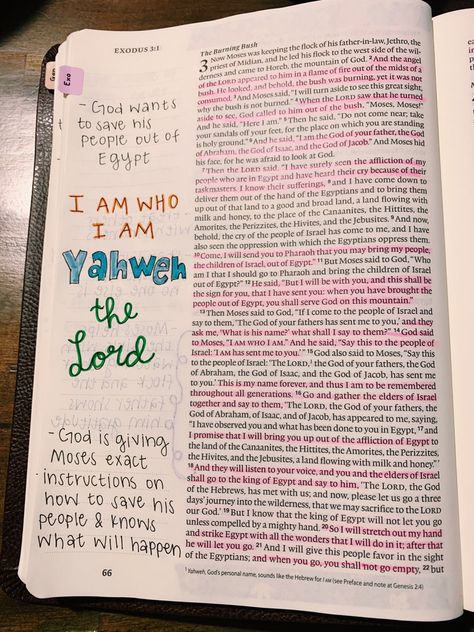 EXODUS 3:1
Gen
Exo
- God wants
to save his
people out of
Egypt
I AM WHO
I AM
Yahweh
the
Lord
- God is giving
Moses exact
instructions on
how to save his
people & knows
what will happen
The Burning Bush
3 Now Moses was keeping the flock of his father-in-law, Jethro, the
priest of Midian, and he led his flock to the west side of the wil-
derness and came to Horeb, the mountain of God. 2 And the angel
of the LORD appeared to him in a flame of fire out of the midst of a
bush. He looked, and behold, the bush was burning, yet it was not
consumed. 3 And Moses said, "I will turn aside to see this great sight,
why the bush is not burned." 4 When the LORD saw that he turned
aside to see, God called to him out of the bush, "Moses, Moses!"
And he said, "Here I am." 5 Then he said, "Do not come near; take
your sandals off your feet, for the place on which you are standing
is holy ground." 6 And he said, "I am the God of your father, the God
of Abraham, the God of Isaac, and the God of Jacob." And Moses hid
his face, for he was afraid to look at God.
7 Then the LORD said, "I have surely seen the affliction of my
people who are in Egypt and have heard their cry because of their
taskmasters. I know their sufferings, 8 and I have come down to
deliver them out of the hand of the Egyptians and to bring them
up out of that land to a good and broad land, a land flowing with
milk and honey, to the place of the Canaanites, the Hittites, the
Amorites, the Perizzites, the Hivites, and the Jebusites. 9 And now,
behold, the cry of the people of Israel has come to me, and I have
also seen the oppression with which the Egyptians oppress them.
10 Come, I will send you to Pharaoh that you may bring my people,
the children of Israel, out of Egypt." 11 But Moses said to God, "Who
am I that I should go to Pharaoh and bring the children of Israel
out of Egypt?" 12 He said, "But I will be with you, and this shall be
the sign for you, that I have sent you: when you have brought the
people out of Egypt, you shall serve God on this mountain."
13 Then Moses said to God, "If I come to the people of Israel and
say to them, 'The God of your fathers has sent me to you,' and they
ask me, 'What is his name?' what shall I say to them?" 14 God said
to Moses, "I AM WHO I AM." And he said, "Say this to the people of
Israel: 'I AM has sent me to you.'" 15 God also said to Moses, "Say this
to the people of Israel: 'The LORD,1 the God of your fathers, the God
of Abraham, the God of Isaac, and the God of Jacob, has sent me
to you.' This is my name forever, and thus I am to be remembered
throughout all generations. 16 Go and gather the elders of Israel
together and say to them, 'The LORD, the God of your fathers, the
God of Abraham, of Isaac, and of Jacob, has appeared to me, saying,
"I have observed you and what has been done to you in Egypt, 17 and
I promise that I will bring you up out of the affliction of Egypt to
the land of the Canaanites, the Hittites, the Amorites, the Perizzites,
the Hivites, and the Jebusites, a land flowing with milk and honey."'
18 And they will listen to your voice, and you and the elders of Israel
shall go to the king of Egypt and say to him, 'The LORD, the God
of the Hebrews, has met with us; and now, please let us go a three
days' journey into the wilderness, that we may sacrifice to the LORD
our God.' 19 But I know that the king of Egypt will not let you go
unless compelled by a mighty hand. 20 So I will stretch out my hand
and strike Egypt with all the wonders that I will do in it; after that
he will let you go. 21 And I will give this people favor in the sight
of the Egyptians; and when you go, you shall not go empty, 22 but
1 Yahweh, God's personal name, sounds like the Hebrew for I AM (see Preface and note at Genesis 2:4)
66